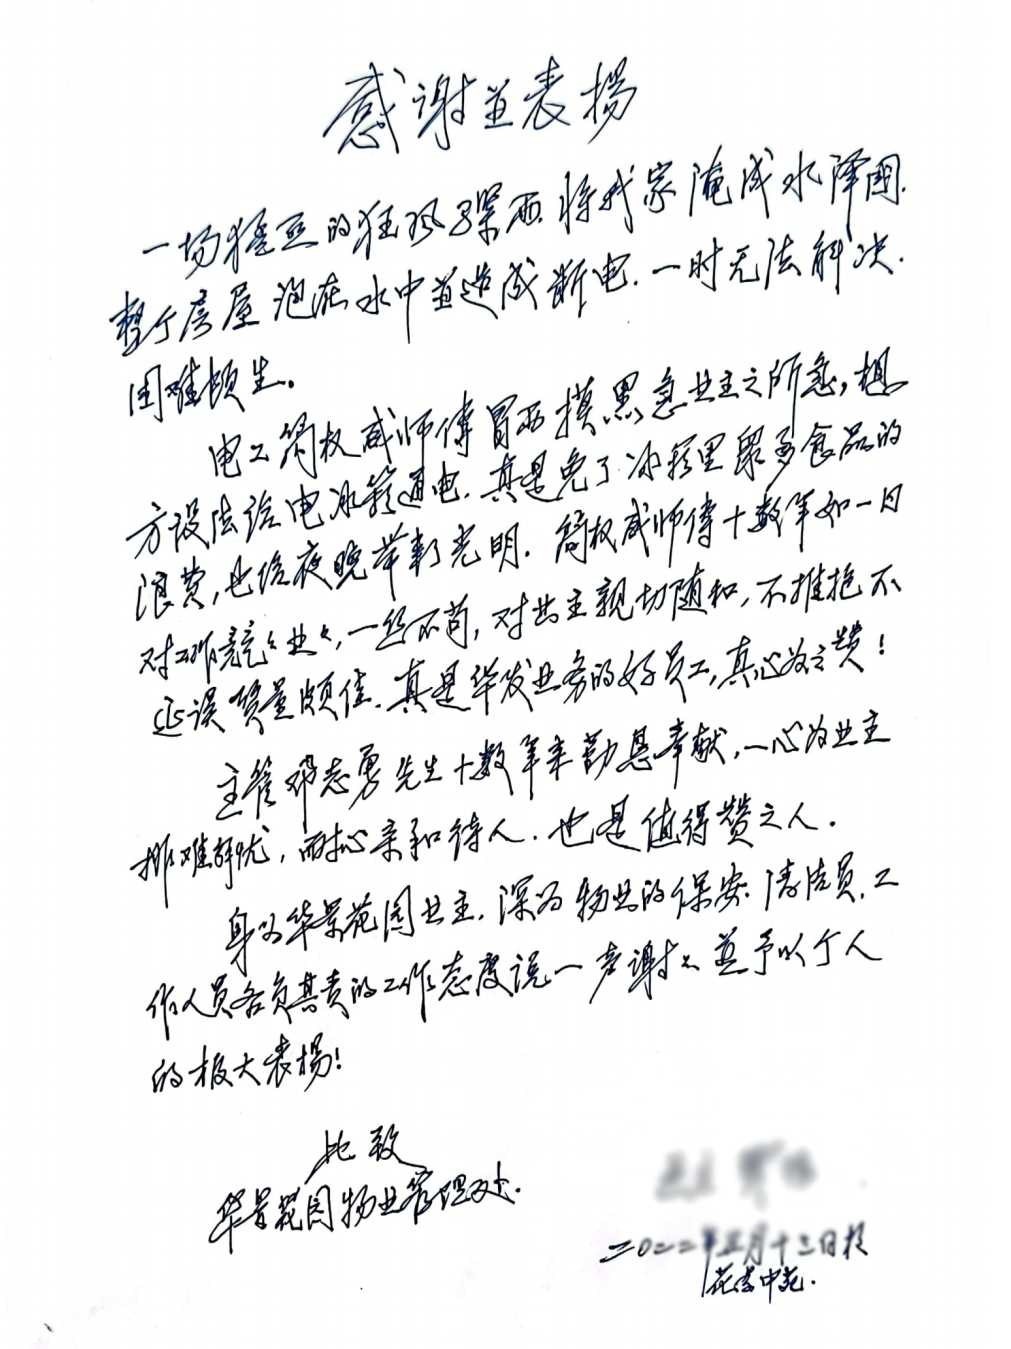 感谢並表揚
一场猛烈的狂风深雨.将我家淹成水泽国.
整个房屋泡在水中並造成断电.一时无法解决.
困难顿生。
电工简权威师傅冒雨摸黑急业主之所急,想
方设法给电冰箱通电.真是免了冰箱里众多食品的
浪费,也给夜晚带来光明.简权威师傅十数年如一日
对工作兢々业々,一丝不苟,对业主親切随和,不推拖不
延误質量颇佳.真是华发业务的好员工,真心为之赞!
主管邓志勇先生十数年来勤恳奉献,一心为业主
排难解忧,耐心亲和待人.也是值得赞之人.
身为华景花园业主.深为物业的保安.清洁员.工
作人员各负其责的工作态度说一声谢々並予以个人
的极大表揚!
此致
华景花园物业管理处.
二0二二年五月十三日於
中苑.